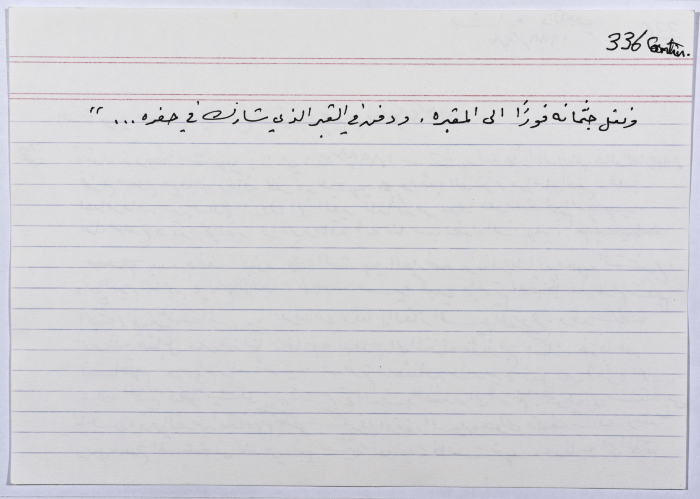 336 Contin.
ونقل جثمانه فورًا الى المقبره، ودفن في القبر الذي شارك في حفره ... "